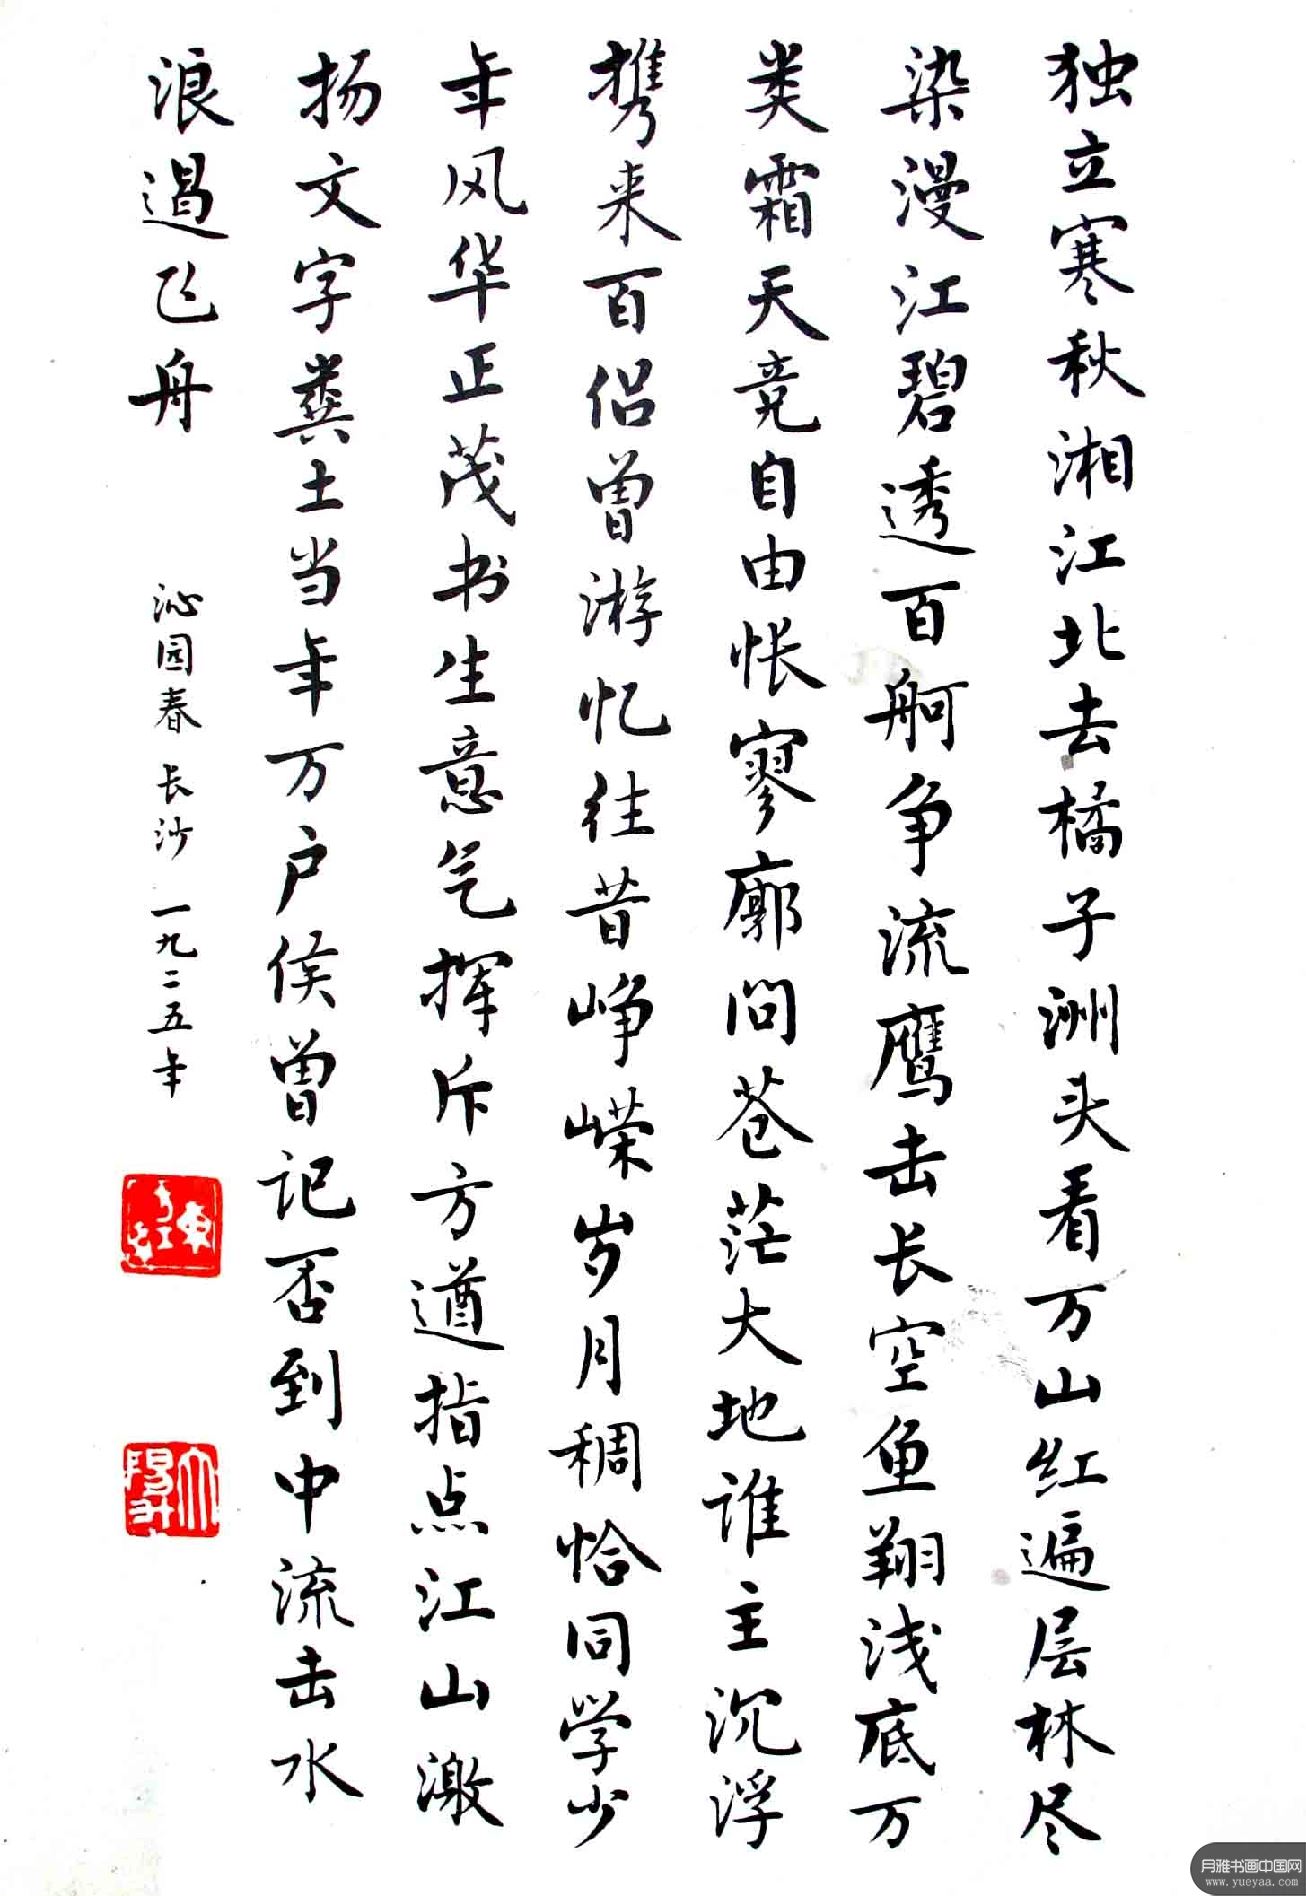 独立寒秋湘江北去橘子洲头看万山红遍层林尽
染漫江碧透百舸争流鹰击长空鱼翔浅底万
类霜天竞自由怅寥廓问苍茫大地谁主沉浮
携来百侣曾游忆往昔峥嵘岁月稠恰同学少
年风华正茂书生意气挥斥方遒指点江山激
扬文字粪土当年万户侯曾记否到中流击水
浪遏飞舟
沁园春 长沙 一九二五年
月雅书画中国网
www.yueyaa.com